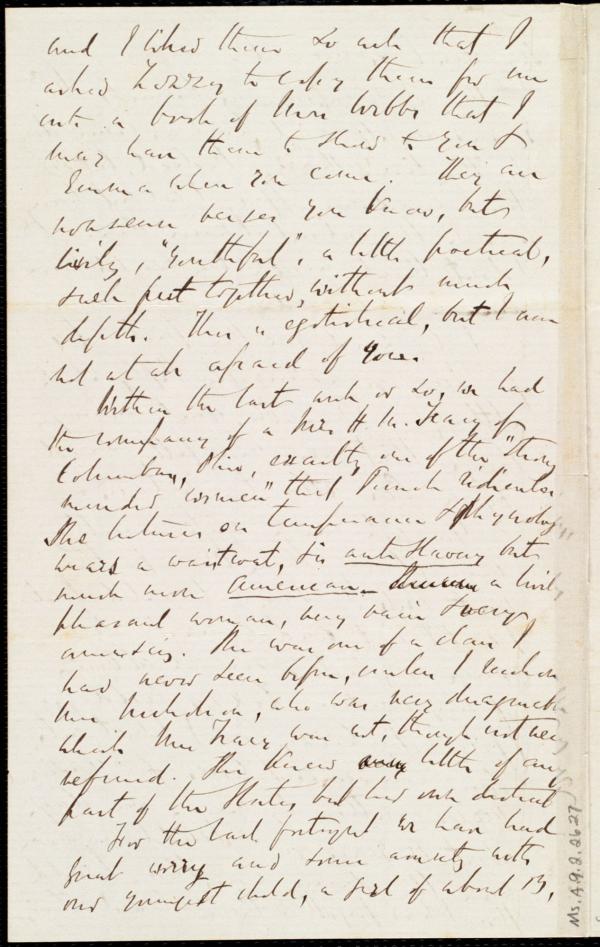 and I liked them so much that I
asked Lizzy to copy them for me
into a book of Miss Webbs that I
may have them to show to you &
Emma when you come. They are
nonsense verses you know, but
lively, "youthful", a little poetical,
such put together, without much
depth. This is egotistical, but I am
not at all afraid of you.
Within the last week or so, we had
the company of a Mrs H. M. Tracy of
Columbus, Ohio, exactly one of the "strong
minded women" that Punch ridicules.
She lectures on temperance & Physiology,
wears a waistcoat, is anti Slavery but
much more American - a lively
pleasant woman, very vain & very
amusing. She was one of a class I
had never seen before, unless I reckon
Mrs Nicholson, who was very disagreeable
which Mrs Tracy was not, though not very
refined. She knew little of any
part of the States, but her own district
For the last fortnight we have had
great worry and some anxiety with
our youngest child, a girl of about 13,
Ms. A.9.2.26.27